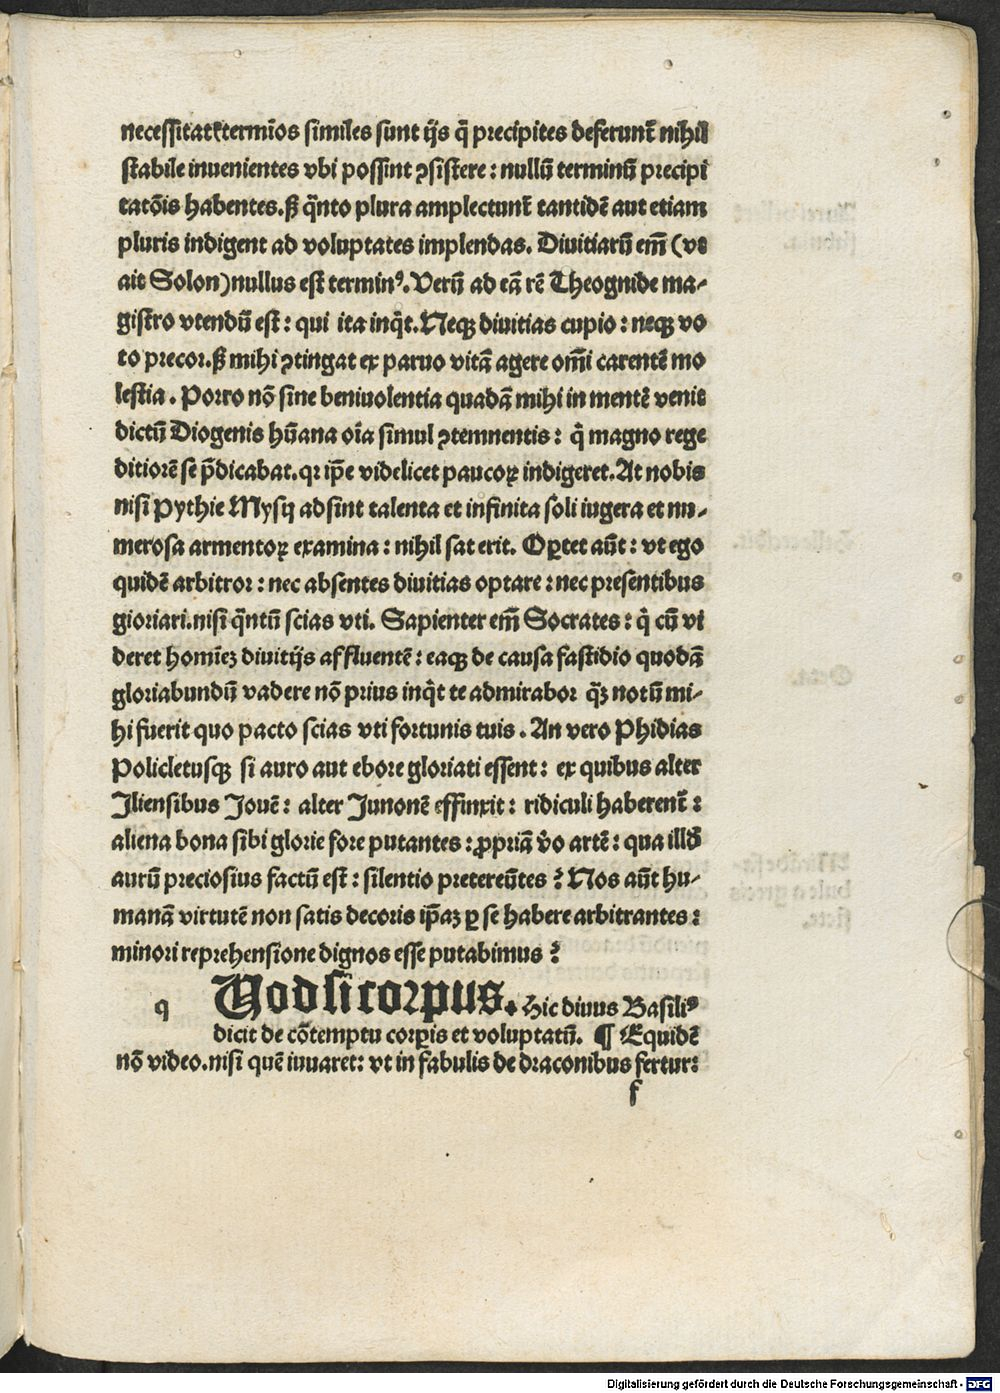 necessitatꝭ termīos similes sunt ijs q̄ precipites deferunt᷑ nihil
stabile inuenientes vbi possint ꝯsistere : nullū terminū precipi
tatōis habentes. ꝭꝫ q̄nto plura amplectunt᷑ tantidē aut etiam
pluris indigent ad voluptates implendas. Diuitiarū em̄ (vt
ait Solon) nullus est terminꝰ. Verū ad eā rē Theognide ma-
gistro vtendū est : qui ita inq̄t. Neqꝫ diuitias cupio : neqꝫ vo
to precor. ꝭꝫ mihi ꝯtingat ex paruo vitā agere om̄i carentē mo
lestia . Porro nō sine beniuolentia quadā mihi in mentē venit
dictū Diogenis hūana oīa simul ꝯtemnentis : q̄ magno rege
ditiorē se p̄dicabat. qꝛ ip̄e videlicet paucoꝝ indigeret. At nobis
nisi Pythie Mysij adsint talenta et infinita soli iugera et nu-
merosa armentoꝝ examina : nihil sat erit. Oꝑtet aūt : vt ego
quidē arbitror : nec absentes diuitias optare : nec presentibus
gloriari. nisi q̄ntū scias vti. Sapienter em̄ Socrates : q̄ cū vi
deret homīeꝫ diuitijs affluentē : eaqꝫ de causa fastidio quodā
gloriabundū vadere nō prius inq̄t te admirabor q̄ꝫ notū mi-
hi fuerit quo pacto scias vti fortunis tuis . An vero Phidias
Policletusqꝫ si auro aut ebore gloriati essent : ex quibus alter
Iliensibus Jouē : alter Junonē effinxit : ridiculi haberent᷑ :
aliena bona sibi glorie fore putantes : ꝓpriā v̄o artē : qua illḋ
aurū preciosius factū est : silentio pretereūtes ? Nos aūt hu-
manā virtutē non satis decoris ip̄aꝫ ꝑ se habere arbitrantes :
minori reprehensione dignos esse putabimus ?
q Uod si corpus. Hic diuus Basiliꝰ
dicit de cōtemptu corꝑis et voluptatū. ¶ Equidē
nō video. nisi quē iuuaret : vt in fabulis de draconibus fertur :
f
Digitalisierung gefördert durch die Deutsche Forschungsgemeinschaft - DFG